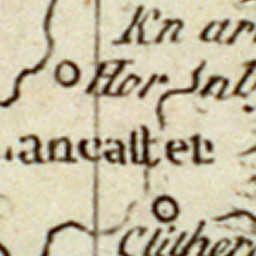 Kn ar
Hor Inl
ancaſter
Clither